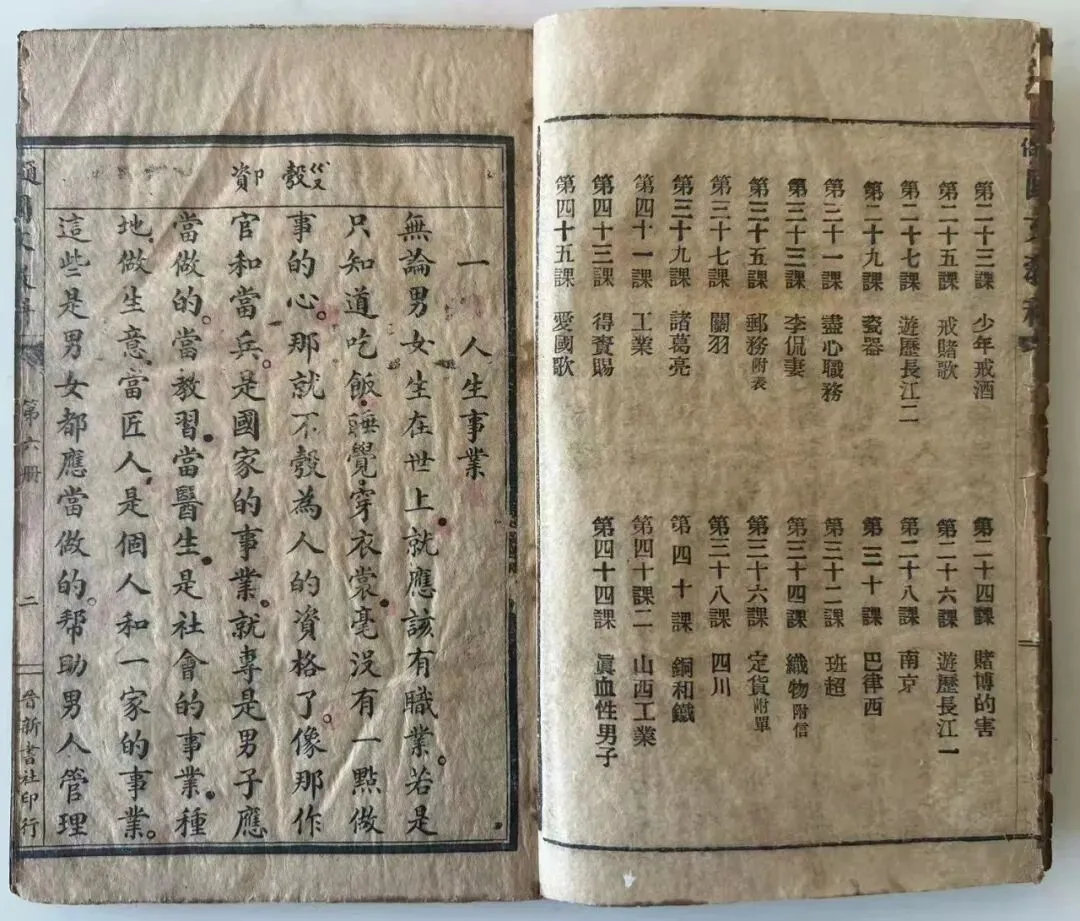 第二十三課　少年戒酒　第二十四課　賭博的害
第二十五課　戒賭歌　第二十六課　遊歷長江一
第二十七課　遊歷長江二　第二十八課　南京
第二十九課　瓷器　第三十課　巴律西
第三十一課　盡心職務　第三十二課　班超
第三十三課　李侃妻　第三十四課　織物附信
第三十五課　郵務附表　第三十六課　定貨附單
第三十七課　關羽　第三十八課　四川
第三十九課　諸葛亮　第四十課　銅和鐵
第四十一課　工業　第四十課二　山西工業
第四十三課　得賚賜　第四十四課　眞血性男子
第四十五課　愛國歌
彀ㄍㄡˋ　資ㄗ
一　人生事業
無論男女生在世上。就應該有職業。若是
只知道吃飯。睡覺。穿衣裳。毫沒有一點做
事的心。那就不彀為人的資格了。像那作
官和當兵。是國家的事業。就專是男子應
當做的。當教習。當醫生。是社會的事業。種
地。做生意。當匠人。是個人和一家的事業。
這些是男女都應當做的。幫助男人管理
第六册
二
晉新書社印行